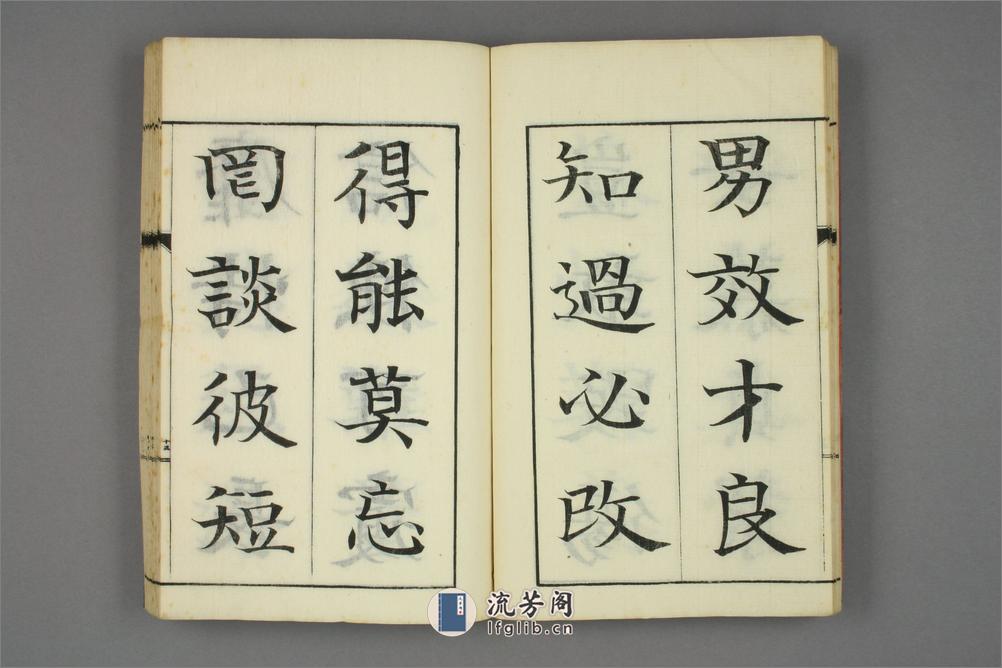 男效才良
知過必改
得能莫忘
罔談彼短
流芳阁
lfglib.cn